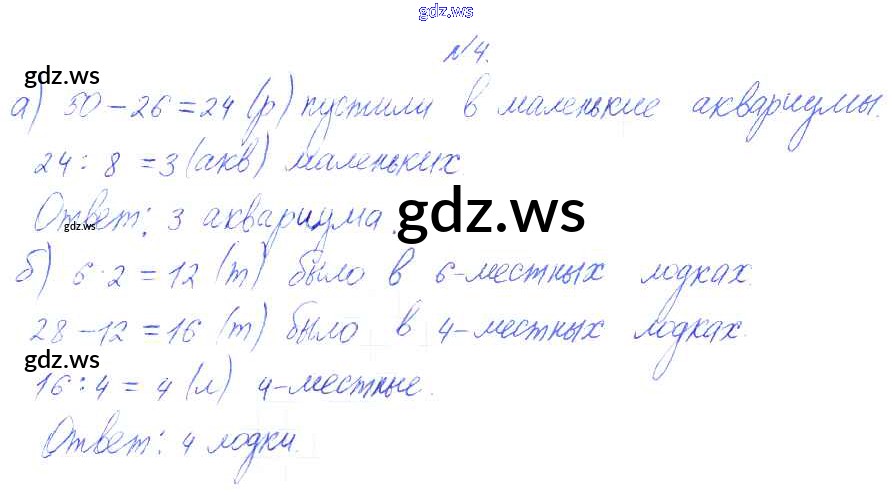 gdz.ws
№4.
gdz.ws
а) 50-26=24 (р) пустили в маленькие аквариумы.
24:8=3(акв) маленьких.
gdz.ws
Ответ: 3 аквариума.
gdz.ws
б) 6·2=12 (т) было в 6-местных лодках.
28-12=16 (т) было в 4-местных лодках.
gdz.ws
16:4=4 (л) 4-местные.
Ответ: 4 лодки.